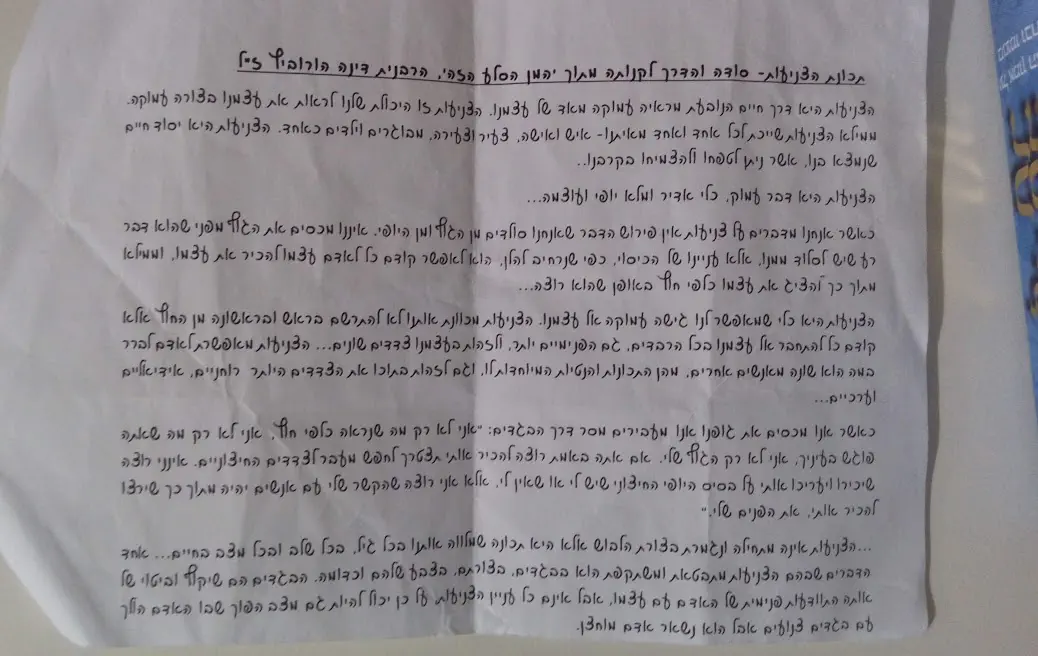 תכונת הצניעות- סודה והדרך לקנותה מתוך יהמן הסלע הזהי, הרבנית דינה הורוביץ זייל
הצניעות היא דרך חיים הנובעת מראיה עמוקה מאד של עצמנו. הצניעות זו היכולת שלנו לראות את עצמנו בצורה עמוקה.
ממילא הצניעות שייכת לכל אחד ואחד מאיתנו- איש ואישה, צעיר וצעירה, מבוגרים וילדים כאחד. הצניעות היא יסוד חיים
שנמצא בנו, אשר ניתן לטפחו ולהצמיחו בקרבנו..
הצניעות היא דבר עמוק, כלי אדיר ומלא יופי ועוצמה...
כאשר אנחנו מדברים על צניעות אין פירוש הדבר שאנחנו סולדים מן הגוף ומן היופי. איננו מכסים את הגוף מפני שהוא דבר
רע שיש לסלוד ממנו, אלא עניינו של הכיסוי, כפי שנרחיב להלן, הוא לאפשר קודם כל לאדם עצמו להכיר את עצמו, וממילא
מתוך כך להציג את עצמו כלפי חוץ באופן שהוא רוצה...
הצניעות היא כלי שמאפשר לנו גישה עמוקה אל עצמנו. הצניעות מכוונת אותנו לא להתרשם בראש ובראשונה מן החוץ אלא
קודם כל להתחבר אל עצמנו בכל הרבדים, גם הפנימיים יותר, ולזהות בעצמנו צדדים שונים... הצניעות מאפשרת לאדם לברר
במה הוא שונה מאנשים אחרים, מהן התכונות והנטיות המיוחדות לו, וגם לזהות בתוכו את הצדדים היותר רוחניים, אידיאליים
וערכיים...
כאשר אנו מכסים את גופנו אנו מעבירים מסר דרך הבגדים: "אני לא רק מה שנראה כלפי חוץ, אני לא רק מה שאתה
פוגש בעיניך, אני לא רק הגוף שלי. אם אתה באמת רוצה להכיר אותי תצטרך לחפש מעבר לצדדים החיצוניים. אינני רוצה
שיכירו ויעריכו אותי על בסיס היופי החיצוני שיש לי או שאין לי, אלא אני רוצה שהקשר שלי עם אנשים יהיה מתוך כך שירצו
להכיר אותי, את הפנים שלי."
...הצניעות אינה מתחילה ונגמרת בצורת הלבוש אלא היא תכונה שמלווה אותנו בכל גיל, בכל שלב ובכל מצב בחיים... אחד
הדברים שבהם הצניעות מתבטאת ומשתקפת הוא בבגדים, בצורתם, בצבע שלהם וכדומה. הבגדים הם שיקוף וביטוי של
אותה התוודעות פנימית של האדם עם עצמו, אבל אינם כל עניין הצניעות על כן יכול להיות גם מצב הפוך שבו האדם הולך
עם בגדים צנועים אבל הוא נשאר אדם מוחצן.